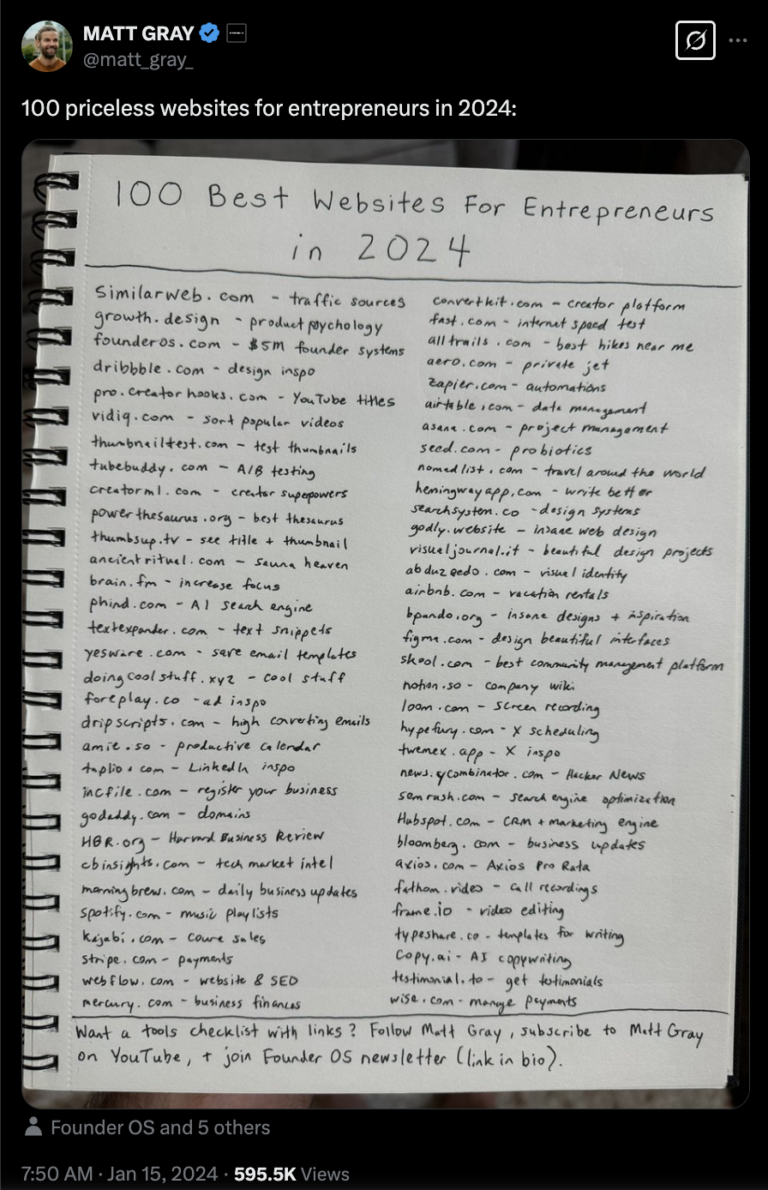 MATT GRAY
@matt_gray_
100 priceless websites for entrepreneurs in 2024:
100 Best Websites For Entrepreneurs
in 2024
similarweb.com - traffic sources
growth.design - product psychology
founderos.com - $5M founder systems
dribbble.com - design inspo
pro.creatorhooks.com - YouTube titles
vidiq.com - sort popular videos
thumbnailtest.com - test thumbnails
tubebuddy.com - A/B testing
creatorml.com - creator superpowers
powerthesaurus.org - best thesaurus
thumbsup.tv - see title + thumbnail
ancientritual.com - sauna heaven
brain.fm - increase focus
phind.com - AI search engine
textexpander.com - text snippets
yesware.com - save email templates
doingcoolstuff.xyz - cool stuff
foreplay.co - ad inspo
dripscripts.com - high converting emails
amie.so - productive calendar
taplio.com - LinkedIn inspo
incfile.com - register your business
godaddy.com - domains
HBR.org - Harvard Business Review
cbinsights.com - tech market intel
morningbrew.com - daily business updates
spotify.com - music playlists
kajabi.com - course sales
stripe.com - payments
webflow.com - website & SEO
mercury.com - business finances
convertkit.com - creator platform
fast.com - internet speed test
alltrails.com - best hikes near me
aero.com - private jet
zapier.com - automations
airtable.com - data management
asana.com - project management
seed.com - probiotics
nomadlist.com - travel around the world
hemingwayapp.com - write better
searchsystem.co - design systems
godly.website - insane web design
visualjournal.it - beautiful design projects
abduzeedo.com - visual identity
airbnb.com - vacation rentals
bpando.org - insane designs + inspiration
figma.com - design beautiful interfaces
skool.com - best community management platform
notion.so - company wiki
loom.com - screen recording
hypefury.com - X scheduling
twemex.app - X inspo
news.ycombinator.com - Hacker News
semrush.com - search engine optimization
Hubspot.com - CRM + marketing engine
bloomberg.com - business updates
axios.com - Axios Pro Rata
fathom.video - call recordings
frame.io - video editing
typeshare.co - templates for writing
Copy.ai - AI copywriting
testimonial.to - get testimonials
wise.com - manage payments
Want a tools checklist with links? Follow Matt Gray, subscribe to Matt Gray
on YouTube, + join Founder OS newsletter (link in bio).
Founder OS and 5 others
7:50 AM · Jan 15, 2024 · 595.5K Views